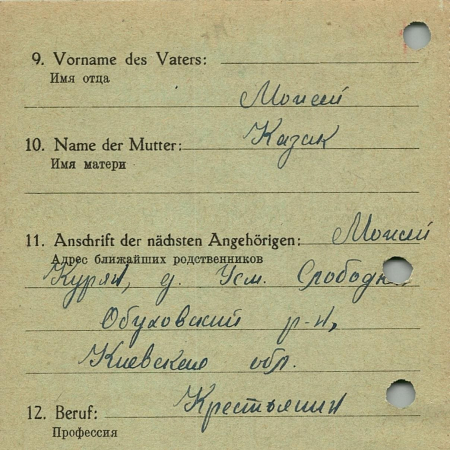 9. Vorname des Vaters:
Имя отца
Моисей
10. Name der Mutter: Казак
Имя матери
11. Anschrift der nächsten Angehörigen: Моисей
Адрес ближайших родственников
Курян, д. Усм. Слободка
Обуховский р-н,
Киевское обл.
12. Beruf: Крестьянин
Профессия